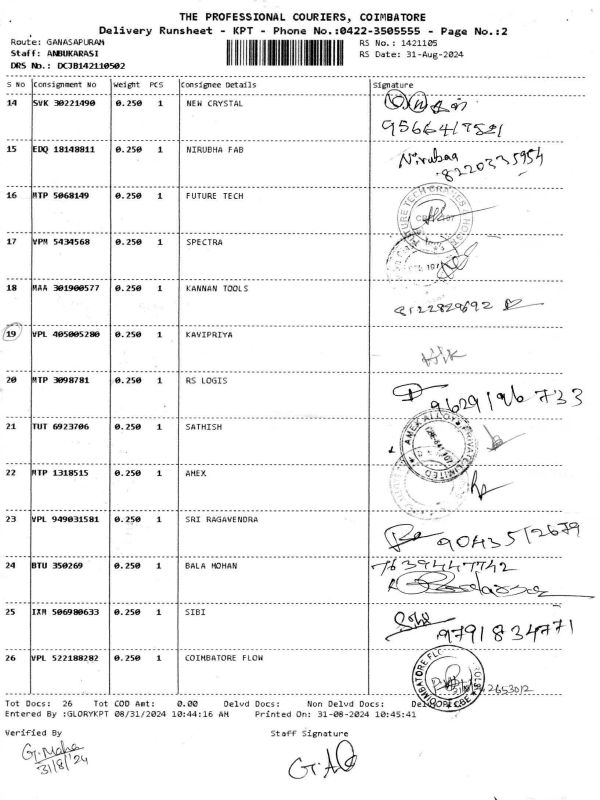 THE PROFESSIONAL COURIERS, COIMBATORE
Delivery Runsheet - KPT - Phone No.:0422-3505555 - Page No.:2
Route: GANASAPURAM RS No.: 1421105
Staff: ANBUKARASI RS Date: 31-Aug-2024
DRS No.: DCJB142110502
S No Consignment No Weight PCS Consignee Details Signature
14 SVK 30221490 0.250 1 NEW CRYSTAL
15 EDQ 18148811 0.250 1 NIRUBHA FAB Nirubaa
8220335954
16 MTP 5068149 0.250 1 FUTURE TECH
17 VPM 5434568 0.250 1 SPECTRA
18 MAA 301900577 0.250 1 KANNAN TOOLS 8122829692
19 VPL 405005280 0.250 1 KAVIPRIYA
20 MTP 3098781 0.250 1 RS LOGIS 9629196733
21 TUT 6923706 0.250 1 SATHISH
AMEX ALLOYS PRIVATE LIMITED
22 MTP 1318515 0.250 1 AMEX
23 VPL 949031581 0.250 1 SRI RAGAVENDRA 9043512679
24 BTU 350269 0.250 1 BALA MOHAN 7639447742
25 IXM 506980633 0.250 1 SIBI
9791834771
26 VPL 522188282 0.250 1 COIMBATORE FLOW
Tot Docs: 26 Tot COD Amt: 0.00 Delvd Docs: Non Delvd Docs:
Entered By :GLORYKPT 08/31/2024 10:44:16 AM Printed On: 31-08-2024 10:45:41
Verified By Staff Signature
G. Maha
31/8/24